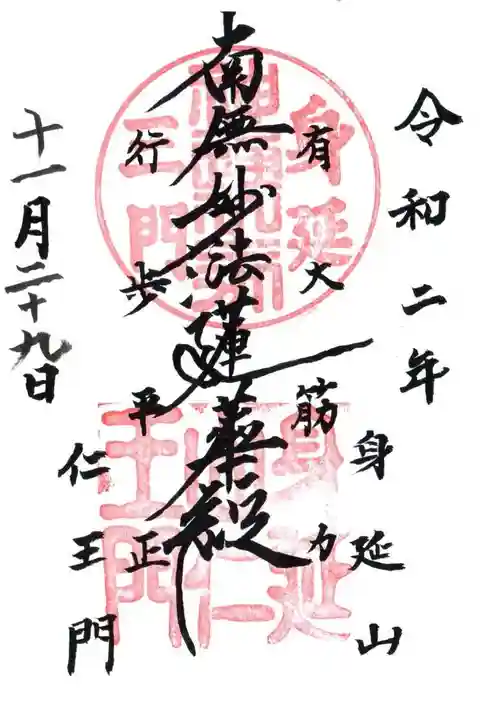 令和二年
身延山
有大筋力
南無妙法蓮華経
行歩平正
仁王門
十一月二十九日
身延
王門
身延
山仁
王門